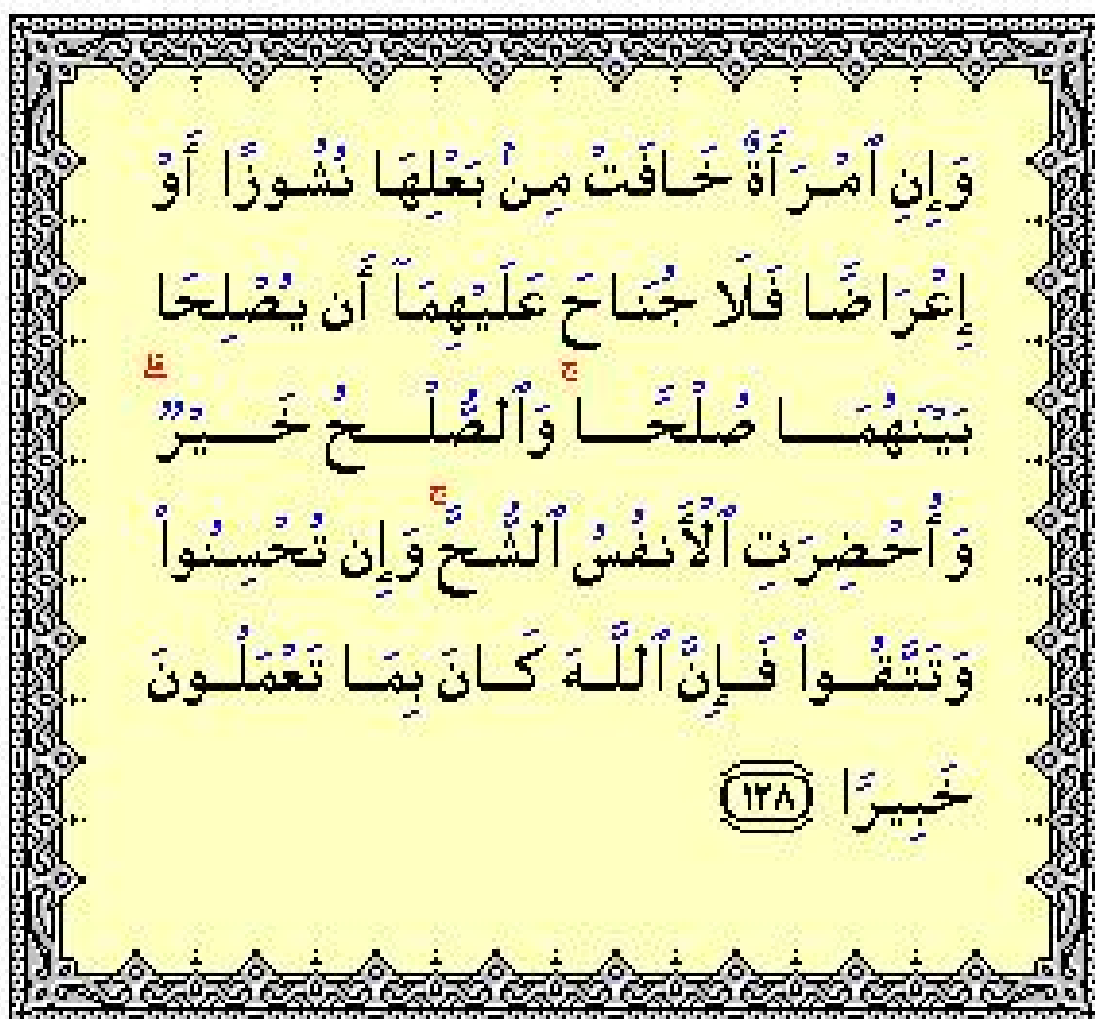 وَإِنِ ٱمْرَأَةٌ خَافَتْ مِنۢ بَعْلِهَا نُشُوزًا أَوْ
إِعْرَاضًا فَلَا جُنَاحَ عَلَيْهِمَآ أَن يُصْلِحَا
بَيْنَهُمَا صُلْحًا ۚ وَٱلصُّلْحُ خَيْرٌ ۗ
وَأُحْضِرَتِ ٱلْأَنفُسُ ٱلشُّحَّ ۚ وَإِن تُحْسِنُوا۟
وَتَتَّقُوا۟ فَإِنَّ ٱللَّهَ كَانَ بِمَا تَعْمَلُونَ
خَبِيرًا ١٢٨